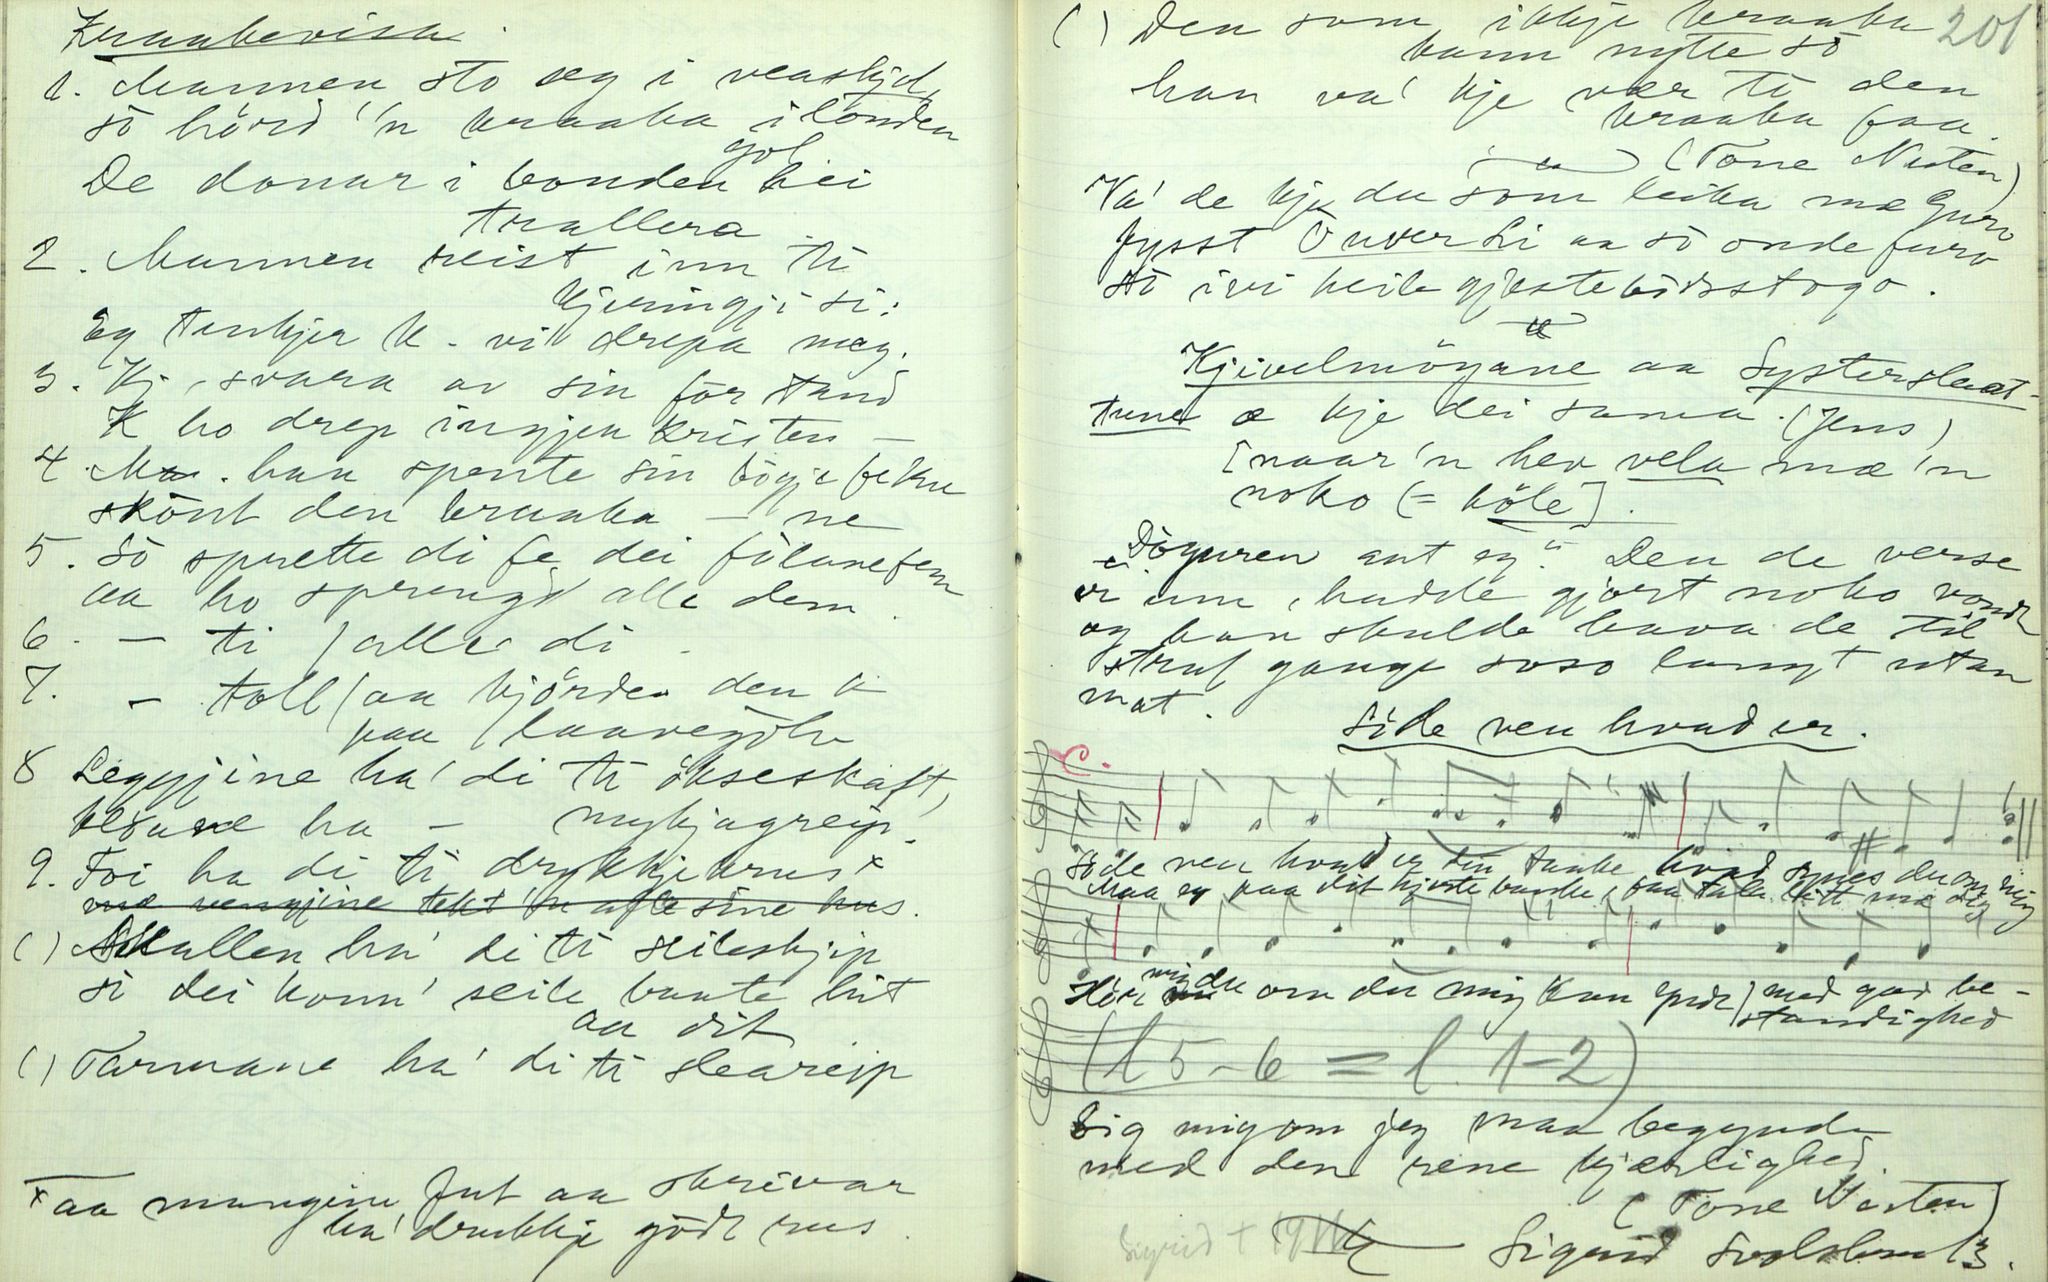 Kraakevisa.
1. Mannen sto seg i veaskjul,
så hørd 'n kraaka i lunden
gol
De donar i bonden hei
trallera
2. Mannen reist inn ti
kjeringji si:
Eg tenkjer k. vil drepa meg.
3. Kj. svara av sin forstand
K ho drep ingjen kristen —
4. Man. han spente sin bogje for kne
skönt den kraaka — ne
5. Så sprette di fe dei folanefem
aa ho sprengd alle dem
6. — ti / alle di
7. — toll / aa kjörde den k
paa laavegolv
8 Leggjine ha' di ti økseskaft,
klosane ha — mykjagreip.
9. Foi ha di ti drykkjekrus x
( ) Skallen ha' di ti seileskjip
så dei konn' seile baate hit
aa dit
( ) Tarmane ha' di ti
x aa mangein fut aa skrivar
ha' drukkje godt rus
( ) Den som ikkje kraaka 201
kann nytte så
han va' kje vær ti den
kraaka faa.
(Tone Nusten)
Va' de kje du som leika mæ Guro
fysst Onver Li aa så onde furo
så ivi heile gjestebodsstogo.
Kjivelmöyane aa Systerslaat-
tune æ kje dei sama. (Jens)
[naar 'n hev vela mæ 'n
noko (= höle].
Døguren aut eg". Den de verse
er um, hadde gjort noko vondt
og han skulde hava de til
straf gange soso langt utan
mat.
Side ven hvad er.
Søde ven hvad er din tanke hvad synes du om mig
Maa eg paa dit hjerte banke, faa tale litt mæ dig
Hör mig du om du mig kan / med god be-
standighed
(l 5-6 = l. 1-2)
Sig mig om jeg maa begynde
med den rene kjærlighed.
(Tone Nasten)
Sigrid † 19
Sigrid